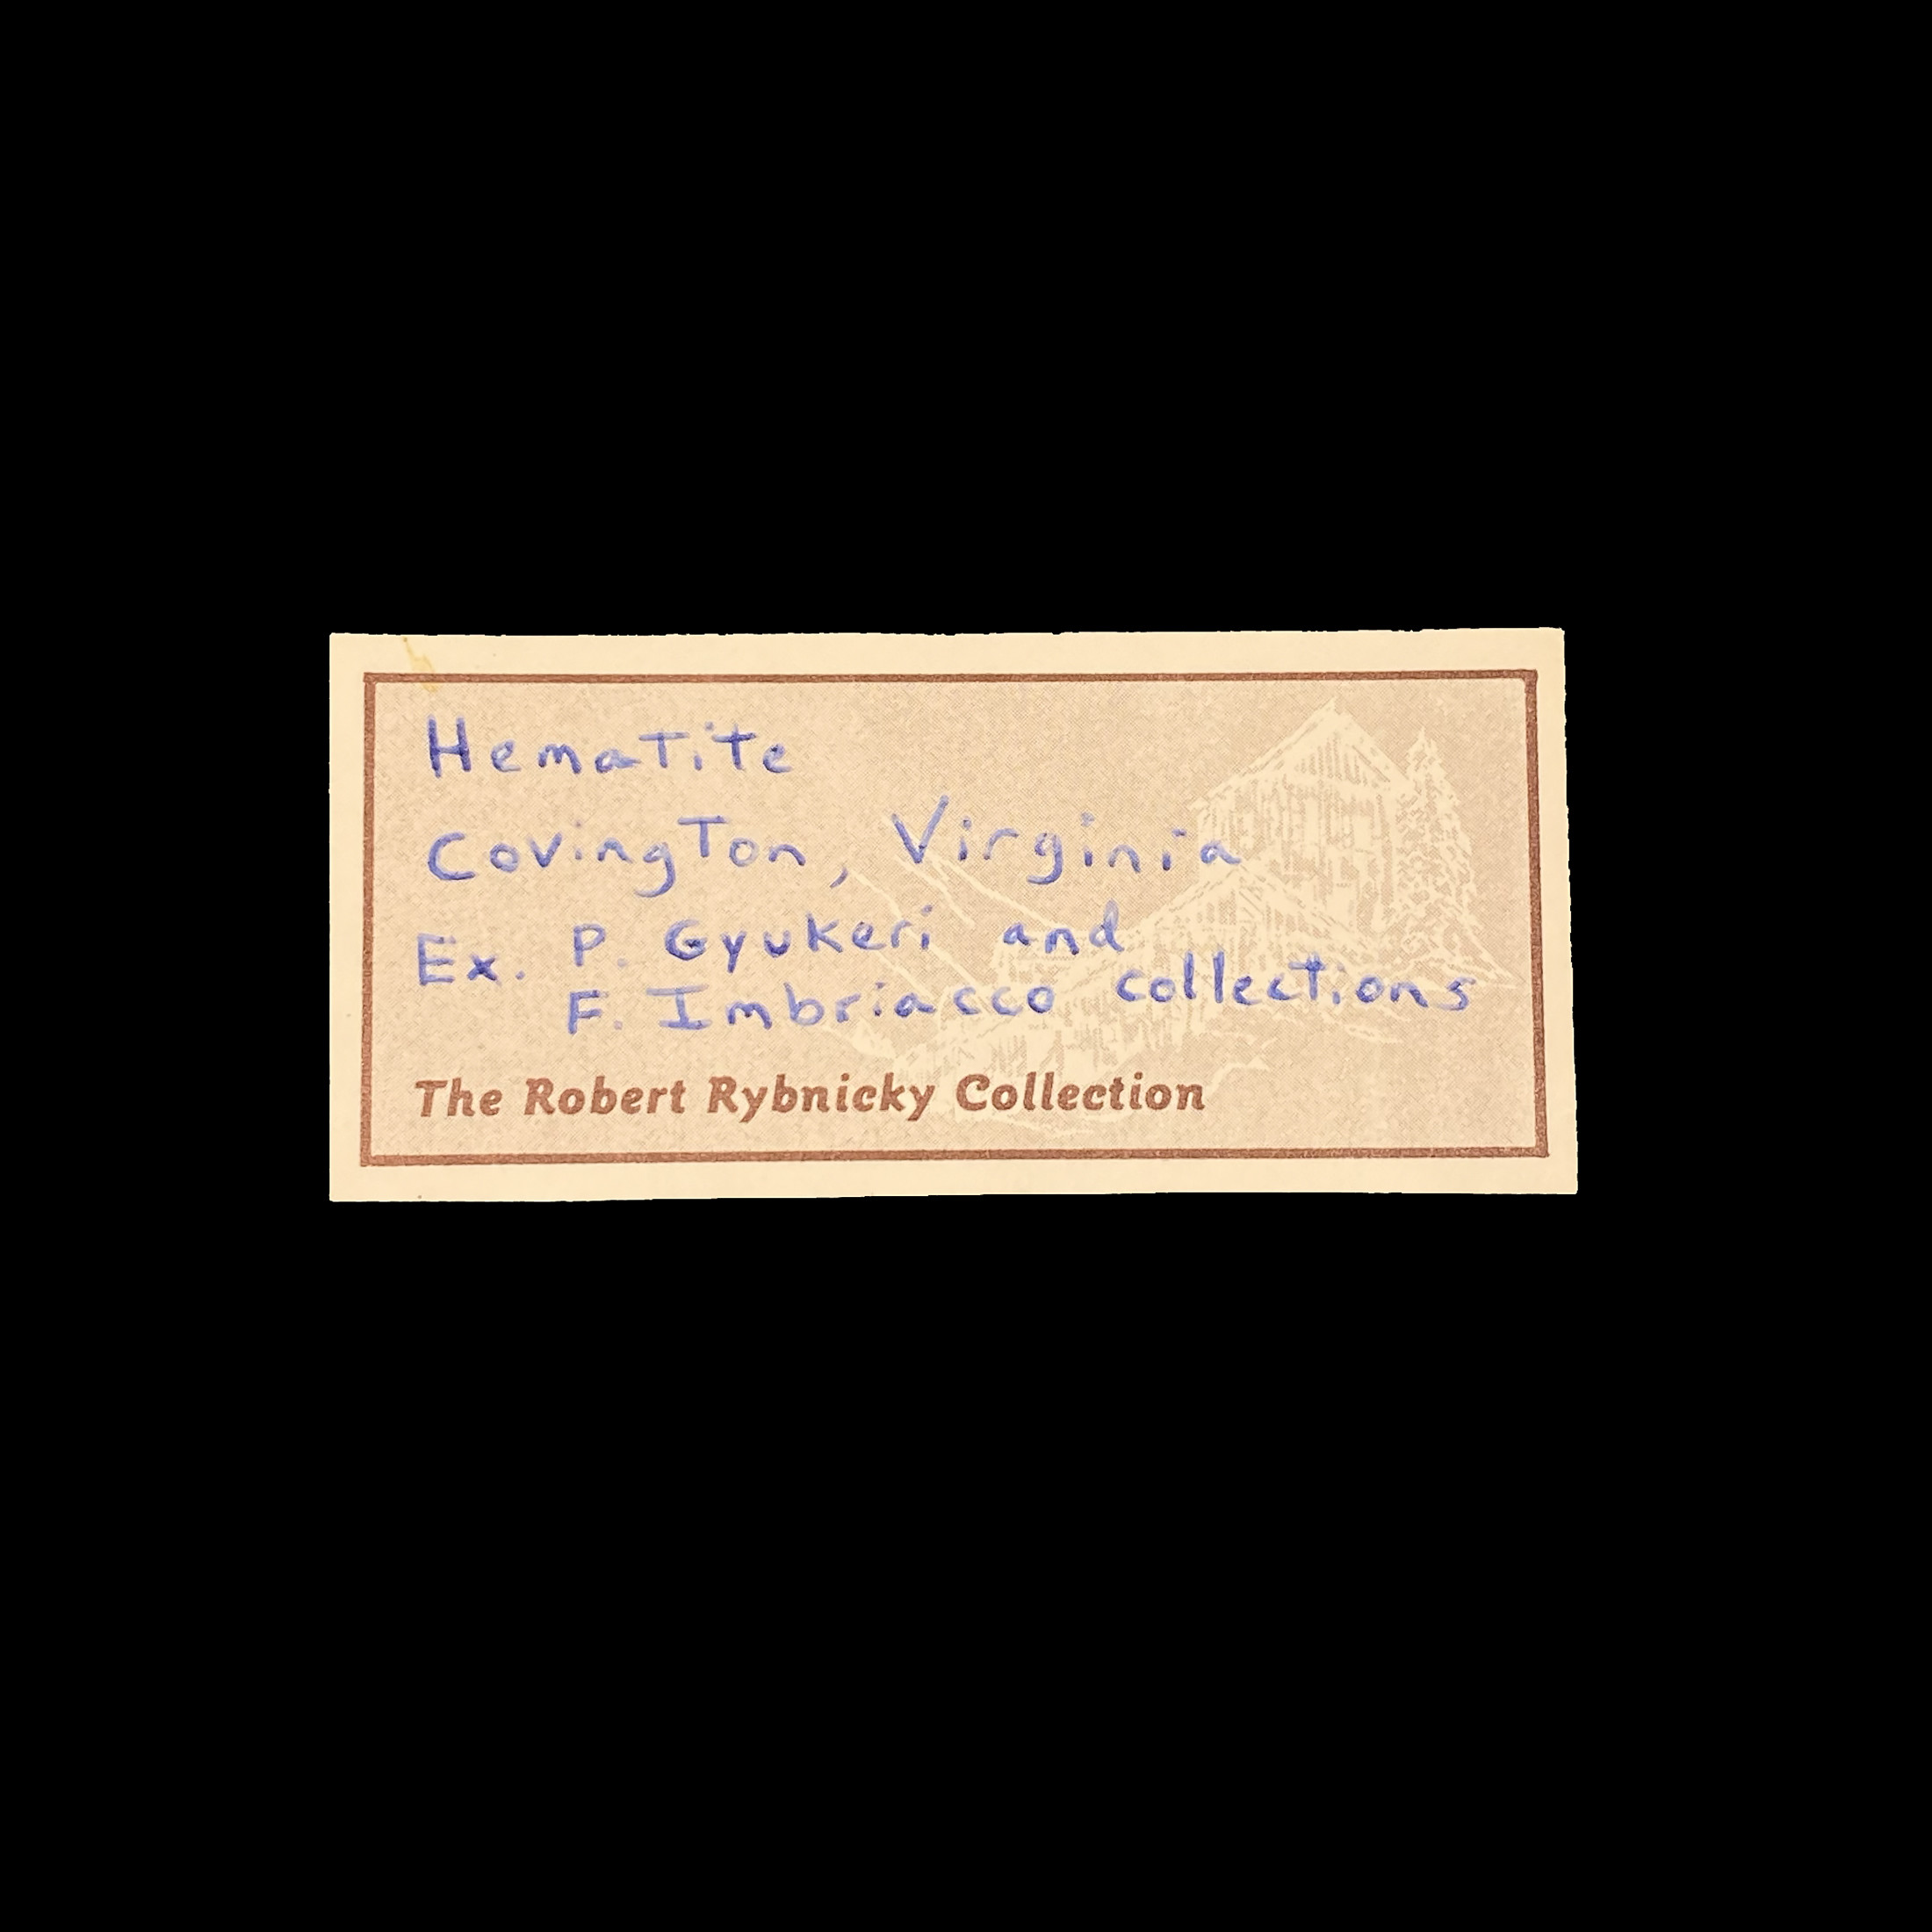 Hematite
Covington, Virginia
Ex. P. Gyukeri and
F. Imbriacco collections
The Robert Rybnicky Collection